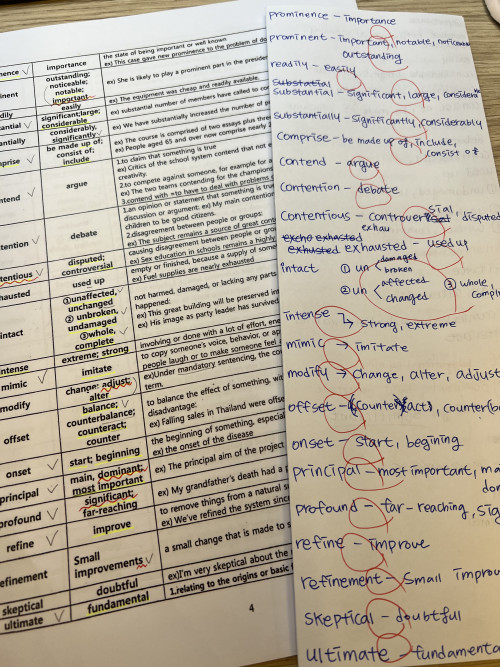 the state of being important or well known
nence importance ex) This case gave new prominence to the problem of
inent outstanding;
noticeable;
notable;
important
ex) She is likely to play a prominent part in the
dily easily ex) The equipment was cheap and readily available.
antial significant;large;
considerable
ex) substantial number of members have called to
antially considerably,
significantly
ex) We have substantially increased the number of
prise be made up of;
consist of;
include
ex) The course is comprised of two essays plus
ex) People aged 65 and over now comprise nearly
tend argue
1.to claim that something is true
ex) Critics of the school system contend that not
creativity.
2.to compete against someone, for example for a
ex) The two teams contending for the
3.contend with =to have to deal with problems
tention debate
1.an opinion or statement that something is
discussion or argument: ex) My main contention
children to be good citizens.
2.disagreement between people or groups:
ex) The subject remains a source of great
tentious disputed;
controversial
causing disagreement between people or
ex) Sex education in schools remains a highly
hausted used up
empty or finished, because a supply of
ex) Fuel supplies are nearly exhausted.
ntact ①unaffected,
unchanged
② unbroken,
undamaged
③whole,
complete
not harmed, damaged, or lacking any parts
happened:
ex) This great building will be preserved
ex) His image as party leader has survived
ntense extreme; strong involving or done with a lot of effort,
mimic imitate
to copy someone's voice, behavior, or
people laugh or to make someone feel
modify change; adjust;
alter
ex)Under mandatory sentencing, the
term.
offset balance;
counterbalance;
counteract;
counter
to balance the effect of something,
disadvantage:
ex) Falling sales in Thailand were
onset start; beginning
the beginning of something,
ex) the onset of the disease
principal main, dominant;
most important
ex) The principal aim of the project
profound significant;
far-reaching
ex) My grandfather's death had a
refine improve
to remove things from a natural
ex) We've refined the system
efinement Small
improvements
a small change that is made to
skeptical doubtful ex)I'm very skeptical about the
ultimate fundamental 1.relating to the origins or basic
4
prominence - importance
prominent - important, notable,
outstanding
readily - easily
Substatial
Substantial - significant, large,
Substantially - significantly, considerably
Comprise - be made up of, include,
consist of
contend - argue
Contention - debate
Contentious - controversial, disputed
exhau
exhausted - used up
intact ① un damaged
broken
② un affected
changed
③ whole,
intense → strong, extreme
mimic → imitate
modify → change, alter, adjust
offset - (counter(act),
onset - start, begining
principal - most important,
profound - far-reaching,
refine - improve
refinement - small
skeptical - doubtful
ultimate - fundamenta